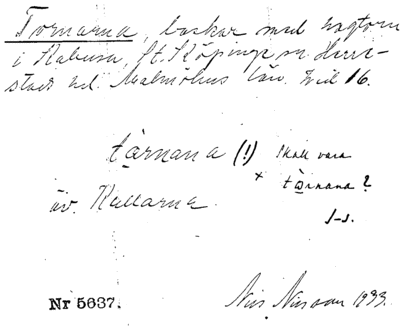 Tornarna, buskar med hagtorn
i Kabusa, St. Köpinge sn Herre-
stads hd. Malmöhus län. Eid 16.
tårnana (!) skall vara
× tårnana?
äv. Kullarna. J-s.
Nr 5637. Nils Nilsson 1933.